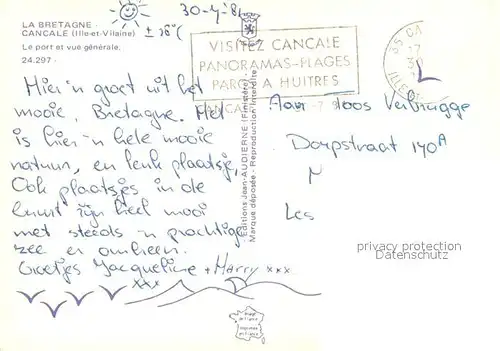 LA BRETAGNE
CANCALE (Ille-et-Vilaine)
Le port et vue générale.
24.297 -
30-7-81
VISITEZ CANCALE
PANORAMAS-PLAGES
PARC A HUITRES
CANCALE
35 CA
17
ILLE
Editions Jean AUDIERNE (Finistère)
Marque déposée - Reproduction interdite
Hier 'n groet uit het
mooie, Bretagne. Het
is hier 'n hele mooie
natuur, en leuk plaatsje,
Ook plaatsjes in de
buurt zijn heel mooi
met steeds 'n prachtige
zee er omheen.
Groetjes Jacqueline + Harry xxx
xxx
Aan Joos Verbrugge
Dorpstraat 140A
N
Les
privacy protection
Datenschutz
image de france
imprimé en france